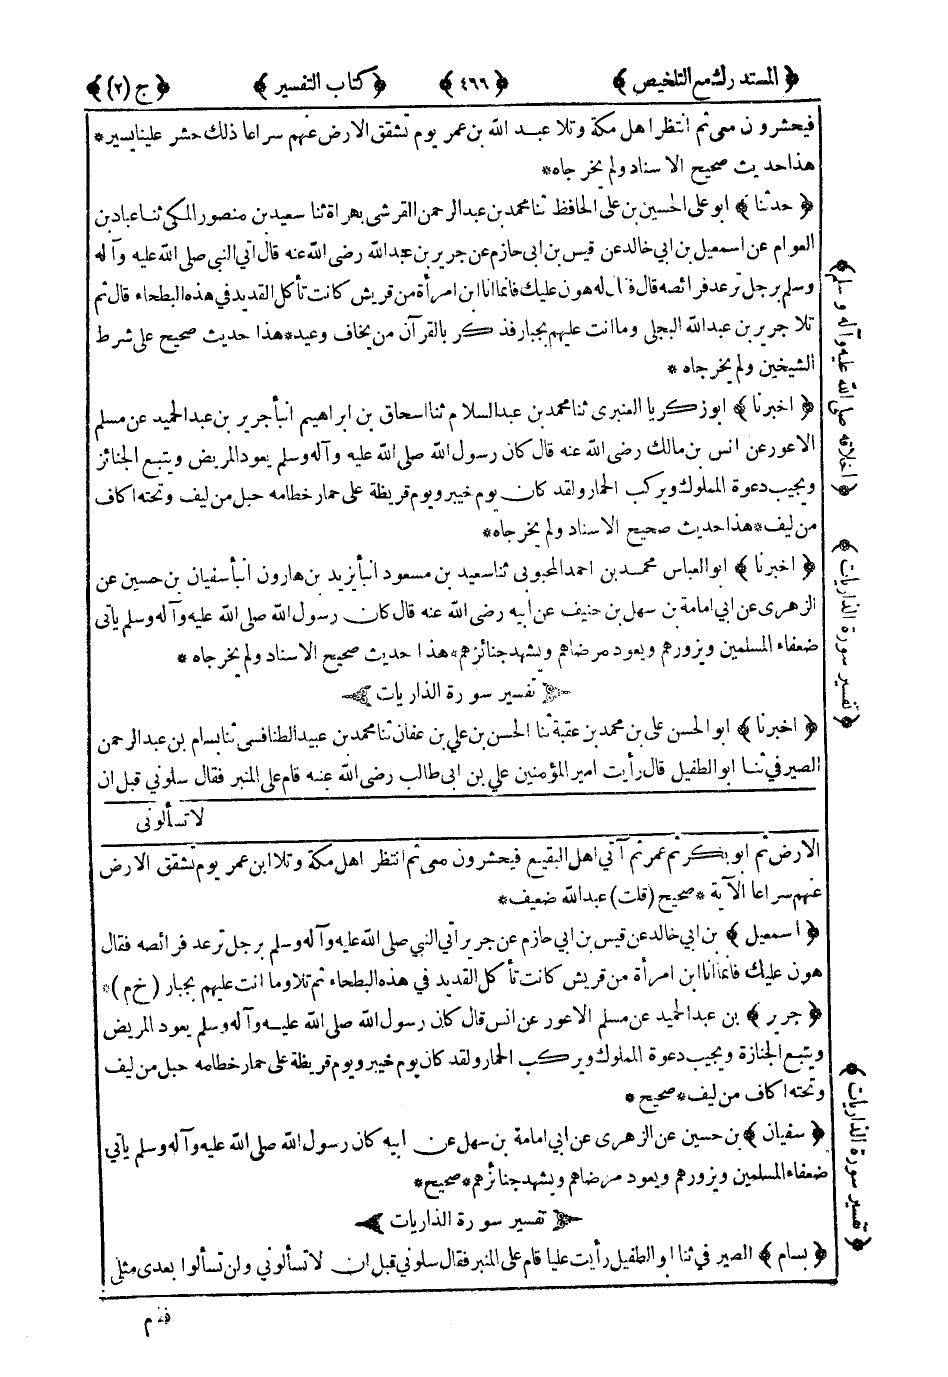 ﴿ المستدرك مع التلخيص ﴾ ﴿ ٤٦٦ ﴾ ﴿ كتاب التفسير ﴾ ﴿ ج (٢) ﴾
فيحشرون معى ثم انتظر اهل مكة وتلا عبد الله بن عمر يوم تشقق الارض عنهم سراعا ذلك حشر علينا يسير *
هذا حديث صحيح الاسناد ولم يخرجاه *
﴿ حدثنا ﴾ ابو على الحسين بن على الحافظ ثنا محمد بن عبد الرحمن القرشى بهراة ثنا سعيد بن منصور المكى ثنا عباد بن
العوام عن اسمعيل بن ابى خالد عن قيس بن ابى حازم عن جرير بن عبد الله رضى الله عنه قال اتي النبي صلى الله عليه وآله
وسلم برجل ترعد فرائصه قال فقال له هون عليك فانما انا ابن امرأة من قريش كانت تأكل القديد في هذه البطحاء قال ثم
تلا جرير بن عبد الله البجلى وما انت عليهم بجبار فذكر بالقرآن من يخاف وعيد * هذا حديث صحيح على شرط
الشيخين ولم يخرجاه *
﴿ اخبرنا ﴾ ابو زكريا العنبرى ثنا محمد بن عبد السلام ثنا اسحاق بن ابراهيم انبأ جرير بن عبد الحميد عن مسلم
الاعور عن انس بن مالك رضى الله عنه قال كان رسول الله صلى الله عليه وآله وسلم يعود المريض ويتبع الجنائز
ويجيب دعوة المملوك ويركب الحمار ولقد كان يوم خيبر ويوم قريظة على حمار خطامه حبل من ليف وتحته اكاف
من ليف * هذا حديث صحيح الاسناد ولم يخرجاه *
﴿ اخبرنا ﴾ ابو العباس محمد بن احمد المحبوبى ثنا سعيد بن مسعود انبأ يزيد بن هارون انبأ سفيان بن حسين عن
الزهرى عن ابي امامة بن سهل بن حنيف عن ابيه رضى الله عنه قال كان رسول الله صلى الله عليه وآله وسلم يأتى
ضعفاء المسلمين ويزورهم ويعود مرضاهم ويشهد جنائزهم * هذا حديث صحيح الاسناد ولم يخرجاه *
تفسير سورة الذاريات
﴿ اخبرنا ﴾ ابو الحسن على بن محمد بن عقبة ثنا الحسن بن علي بن عفان ثنا محمد بن عبيد الطنافسى ثنا بسام بن عبد الرحمن
الصيرفي ثنا ابو الطفيل قال رأيت امير المؤمنين علي بن ابى طالب رضى الله عنه قام على المنبر فقال سلونى قبل ان
لا تسألونى
الارض ثم ابو بكر ثم عمر ثم آتي اهل البقيع فيحشرون معى ثم انتظر اهل مكة وتلا ابن عمر يوم تشقق الارض
عنهم سراعا الآية * صحيح (قلت) عبد الله ضعيف *
﴿ اسمعيل ﴾ بن ابي خالد عن قيس بن ابي حازم عن جرير اتي النبي صلى الله عليه وآله وسلم برجل ترعد فرائصه فقال
هون عليك فانما انا ابن امرأة من قريش كانت تأكل القديد في هذه البطحاء ثم تلا وما انت عليهم بجبار (خ م) *
﴿ جرير ﴾ بن عبد الحميد عن مسلم الاعور عن انس قال كان رسول الله صلى الله عليه وآله وسلم يعود المريض
ويتبع الجنازة ويجيب دعوة المملوك ويركب الحمار ولقد كان يوم خيبر ويوم قريظة على حمار خطامه حبل من ليف
وتحته اكاف من ليف * صحيح *
﴿ سفيان ﴾ بن حسين عن الزهرى عن ابي امامة بن سهل عن ابيه كان رسول الله صلى الله عليه وآله وسلم يأتي
ضعفاء المسلمين ويزورهم ويعود مرضاهم ويشهد جنائزهم * صحيح *
تفسير سورة الذاريات
﴿ بسام ﴾ الصيرفي ثنا ابو الطفيل رأيت عليا قام على المنبر فقال سلونى قبل ان لا تسألوني ولن تسألوا بعدى مثلى
فقام
﴿ اخلاقه صلى الله عليه وآله وسلم ﴾
﴿ تفسير سورة الذاريات ﴾
﴿ تفسير سورة الذاريات ﴾